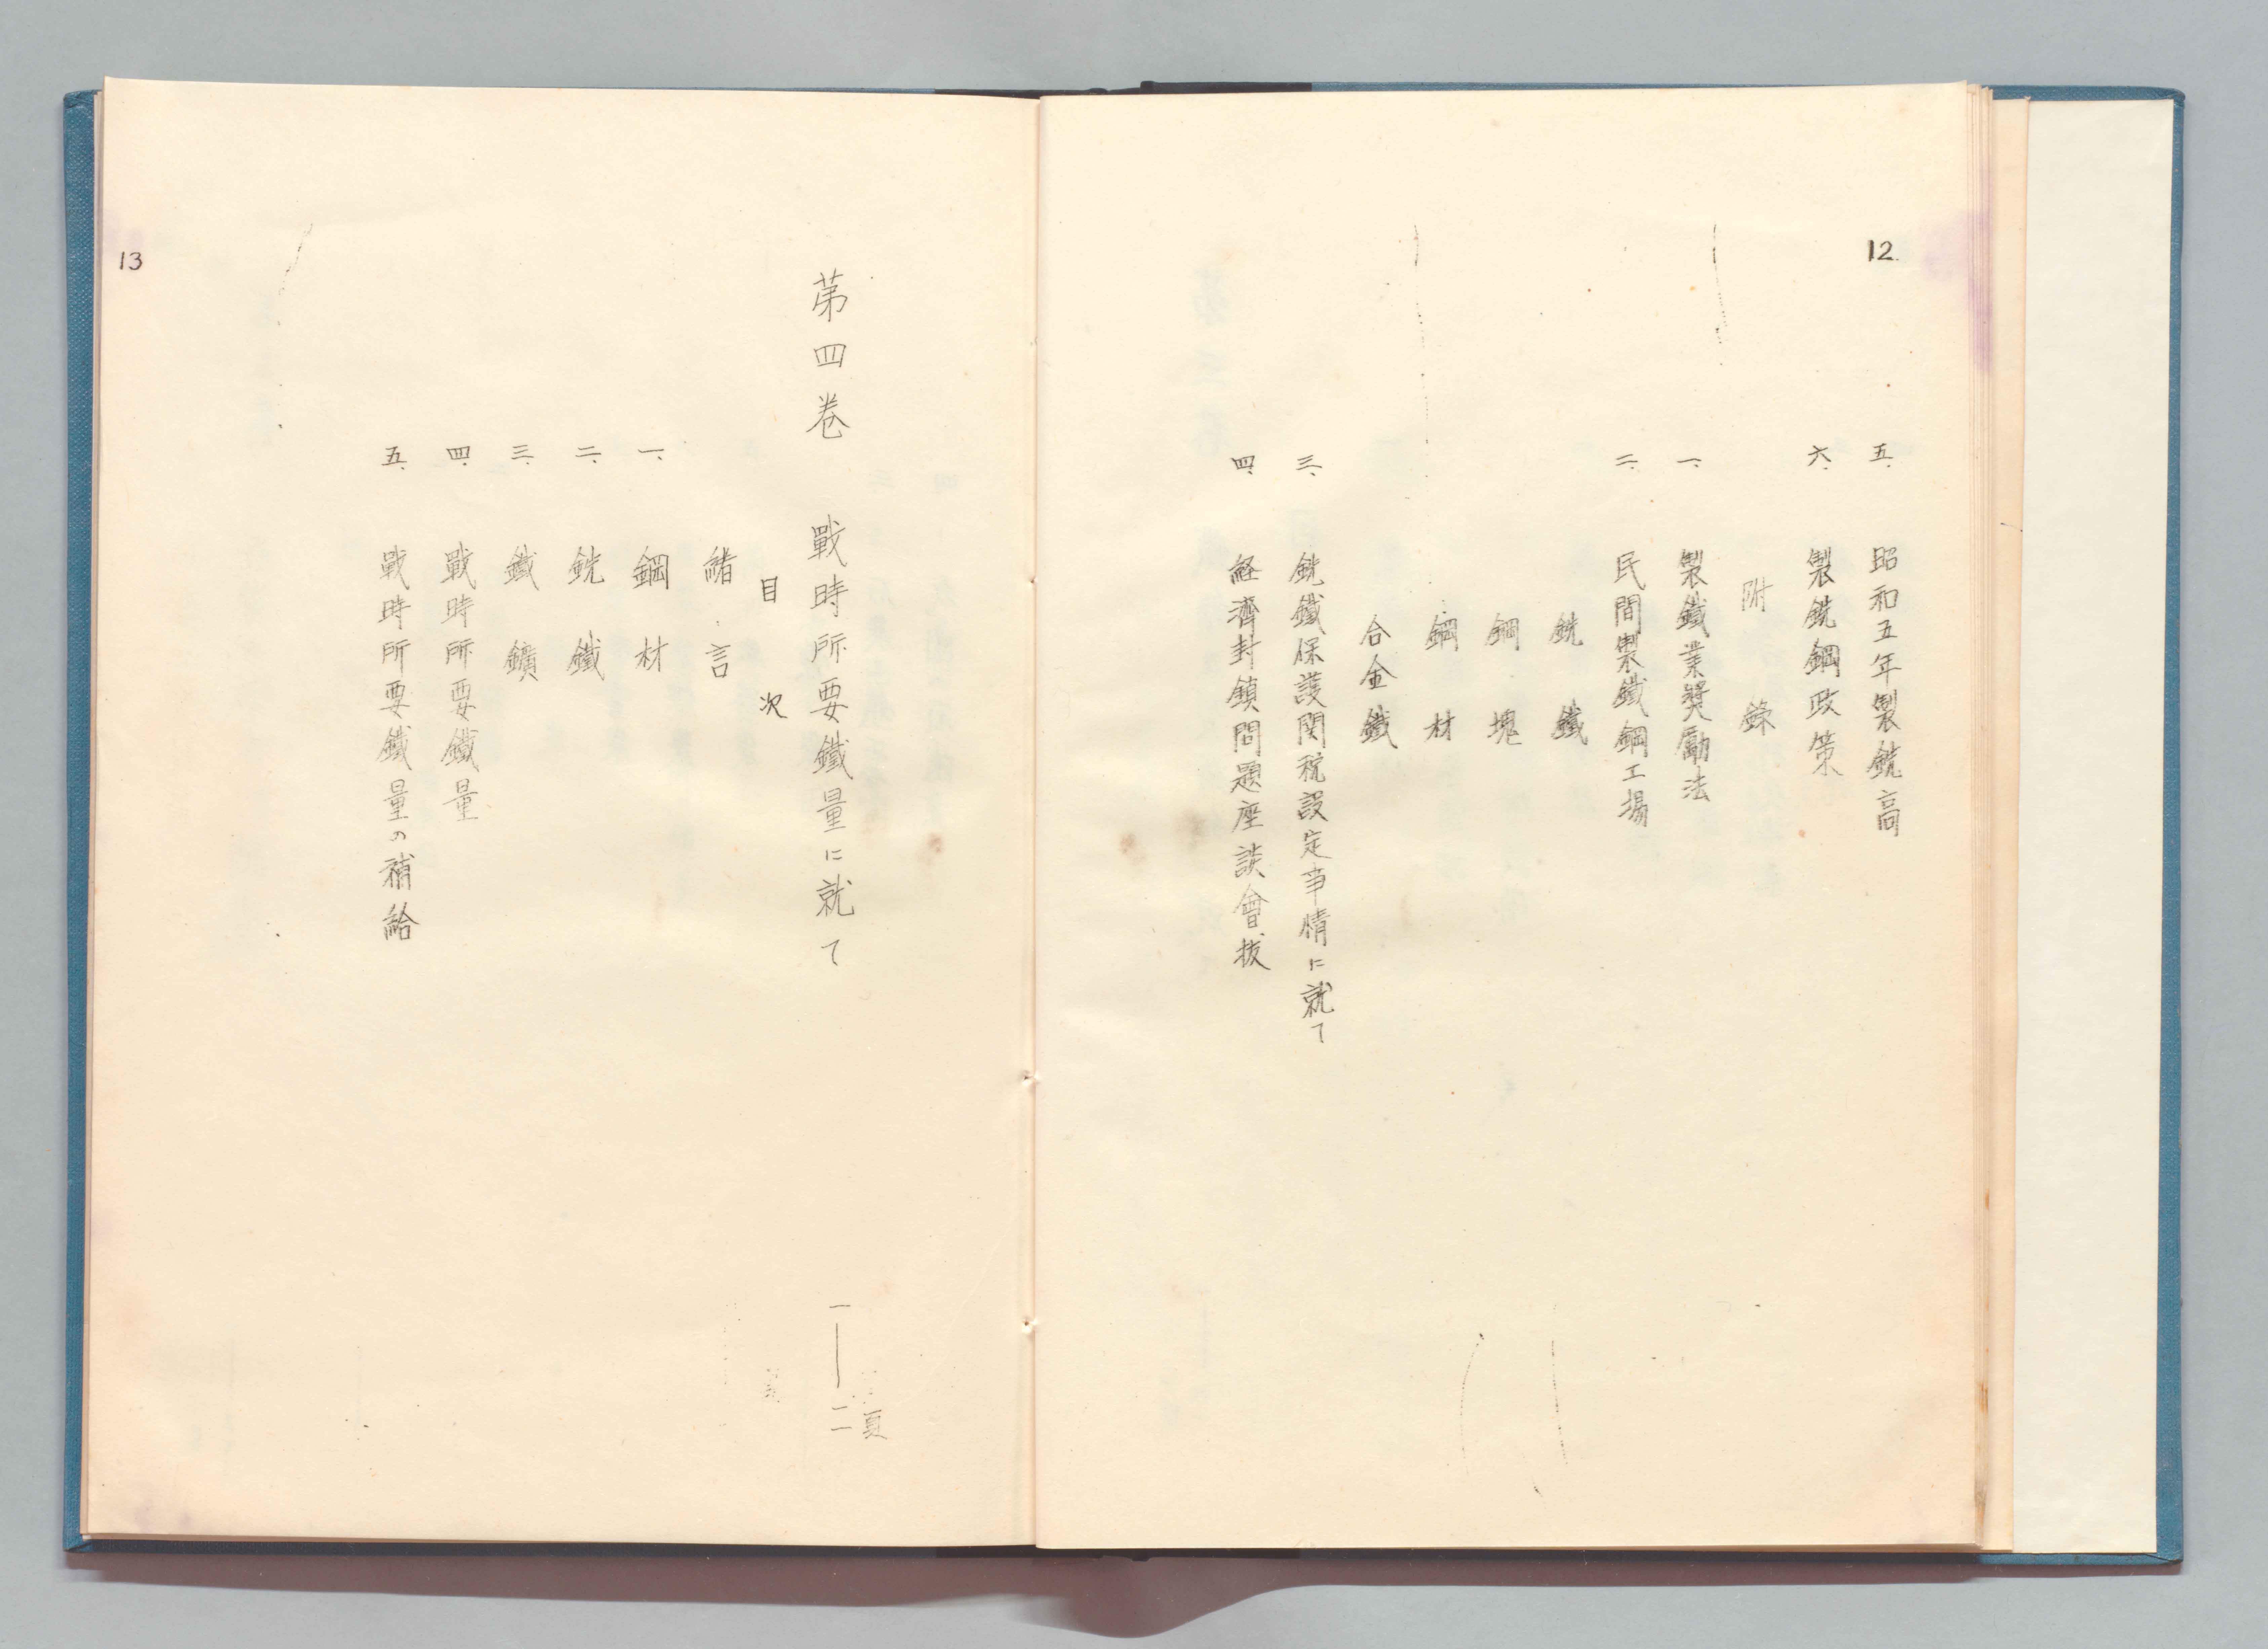 12
五、昭和五年製銑高
六、製銑鋼政策
附錄
一、製鐵業奬勵法
二、民間製鐵鋼工場
銑鐵
鋼塊
鋼材
合金鐵
三、銑鐵保護関税設定事情に就て
四、経濟封鎖問題座談會抜
13
頁
第四巻 戰時所要鐵量に就て 一—二二
目次
緒言
一、鋼材
二、銑鐵
三、鐵鑛
四、戰時所要鐵量
五、戰時所要鐵量の補給